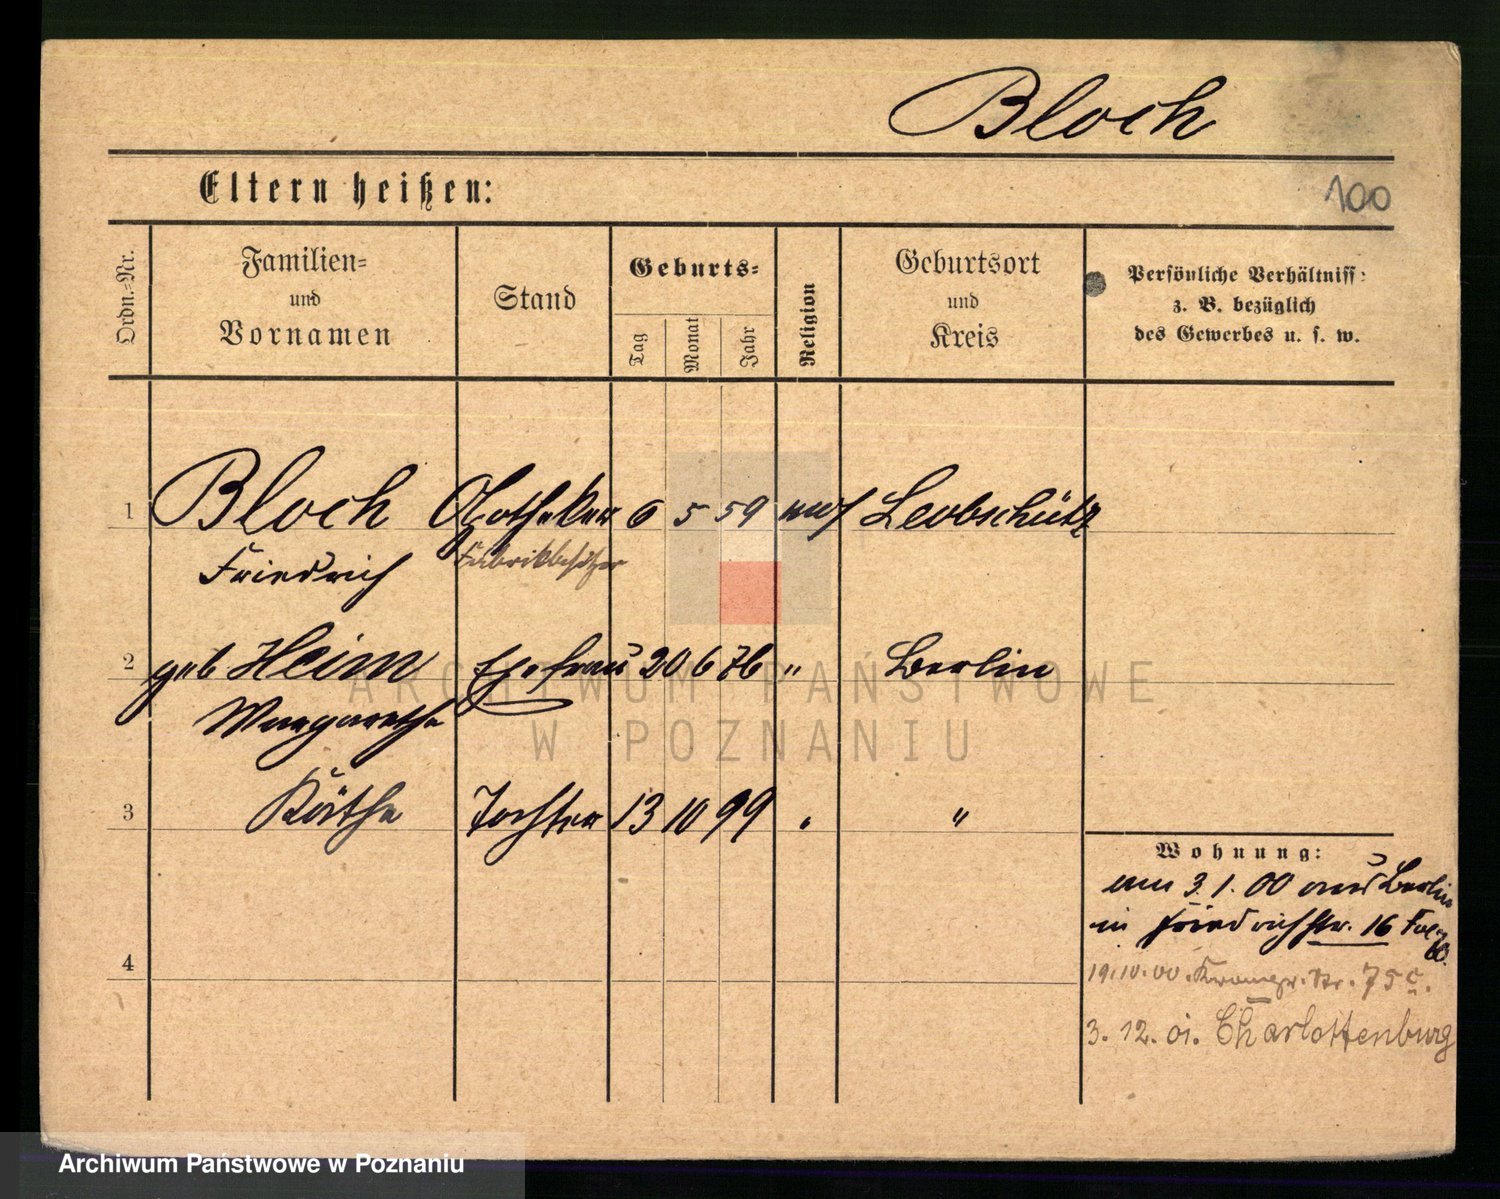 Bloch
Eltern heißen:
100
Ordn.-Nr.
Familien-
und
Vornamen
Stand
Geburts-
Tag
Monat
Jahr
Religion
Geburtsort
und
Kreis
Persönliche Verhältniss:
z. B. bezüglich
des Gewerbes u. s. w.
1 Bloch Apotheker 6 5 59 Leobschütz
Friedrich Fabrikbesitzer
2 geb Heim Ehefrau 20 6 76 " Berlin
Margarethe
3 Käthe Tochter 13 10 99 " "
4
Wohnung:
am 3. 1. 00 aus Berlin
in Friedrichstr. 16
19.10.00. Str. 75
3. 12. 01. Charlottenburg
ARCHIWUM PAŃSTWOWE
W POZNANIU
Archiwum Państwowe w Poznaniu